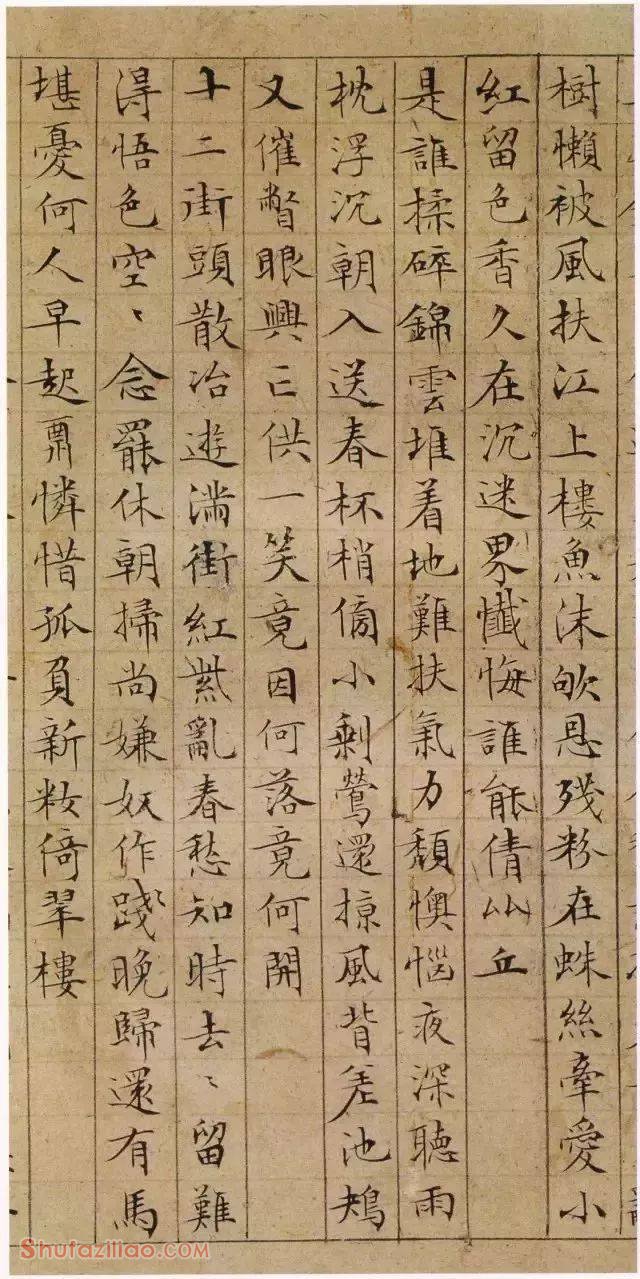 樹懶被風扶江上樓魚沫欨恩殘粉在蛛絲牽愛小
紅留色香久在沉迷界懺悔誰能倩比丘
是誰揉碎錦雲堆着地難扶氣力頹懊惱夜深聽雨
枕浮沉朝入送春杯梢傍小剩鶯還掠風背差池鴂
又催瞥眼興亡供一笑竟因何落竟何開
十二街頭散冶遊滿街紅紫亂春愁知時去、留難
得悟色空、念罷休朝掃尚嫌奴作踐晚歸還有馬
堪憂何人早起憐惜孤負新粧倚翠樓
Shufaziliao.com